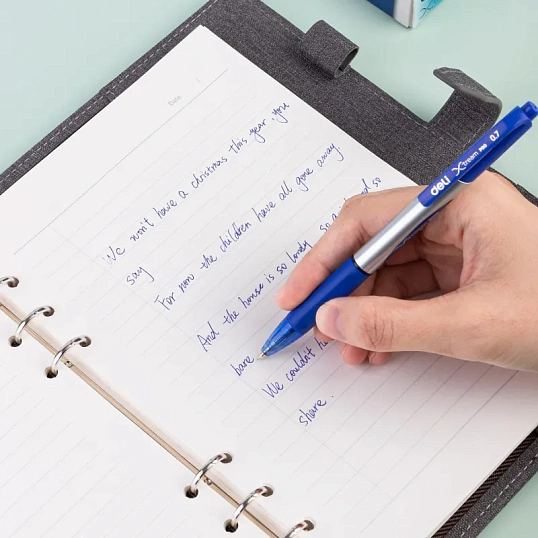 Date
We won't have a christmas this year, you
say
For now the children have all gone away.
And the house is so lonely, so so
bare
We couldn't
share.
deli Xtream PRO 0.7